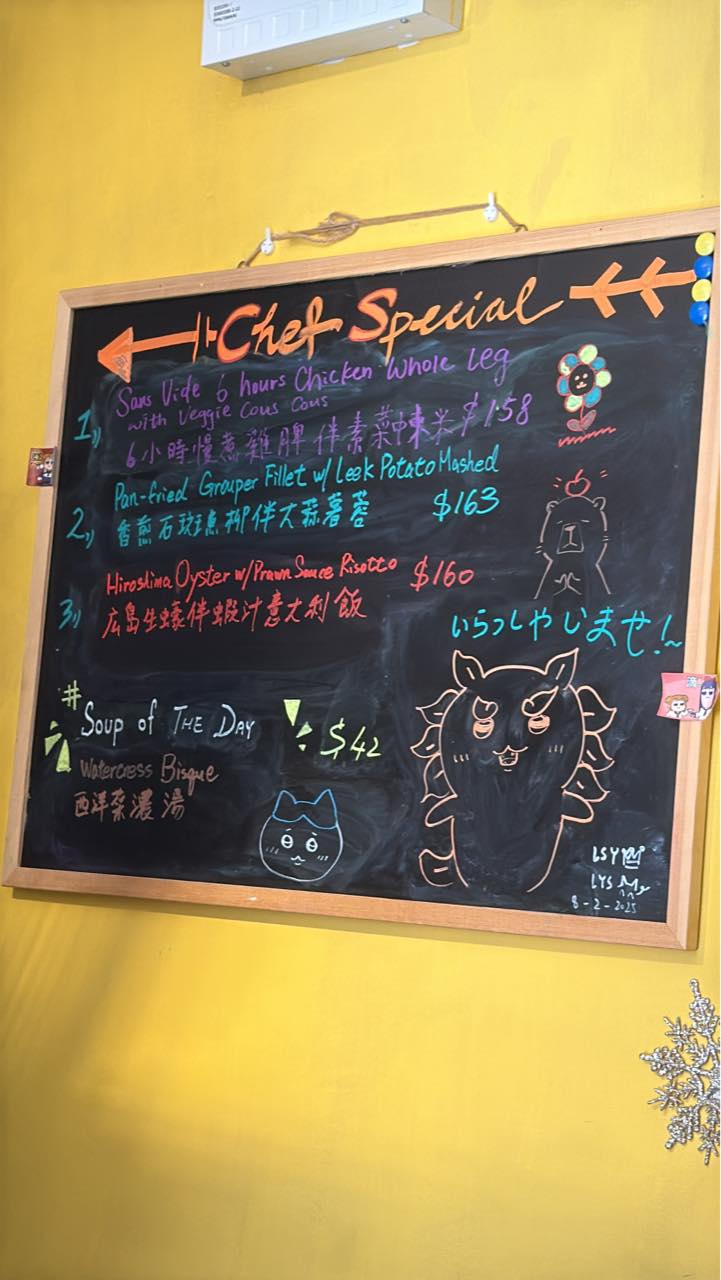 Chef Special
1) Sans Vide 6 hours Chicken Whole Leg
with Veggie Cous Cous
6小時慢煮雞脾 伴素菜中東米 $158
2) Pan-fried Grouper Fillet w/ Leek Potato Mashed
香煎石斑魚柳伴大蒜薯蓉 $163
3) Hiroshima Oyster w/ Prawn Sauce Risotto $160
広島生蠔伴蝦汁意大利飯
いらっしゃいませ!~
# Soup of THE DAY $42
Watercress Bisque
西洋菜濃湯
LSY
LYS
8-2-2025